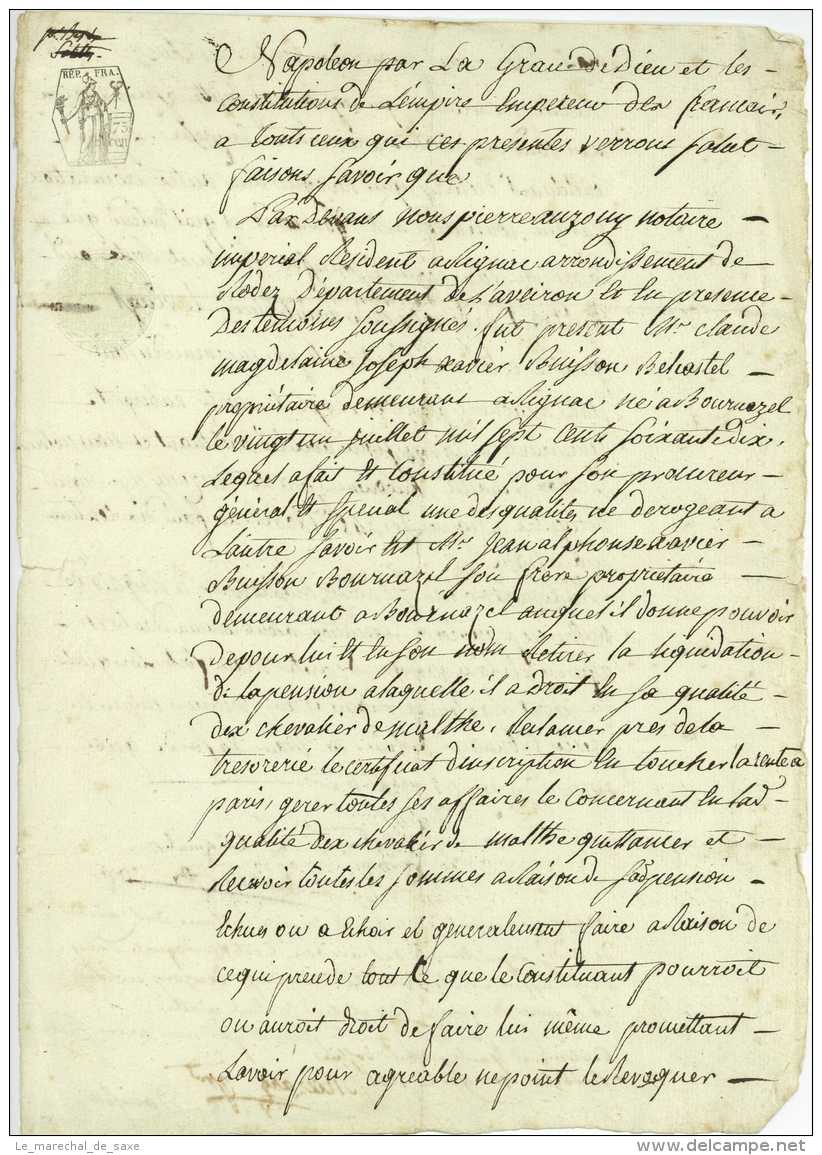 REP. FRA.
75
Napoleon par La Grace de Dieu et les
constitutions de L'empire Empereur des francais,
a touts ceux qui ces presentes verront salut
faisons savoir que
Par Devant nous pierre auzouy notaire
imperial Resident a Rignac arrondissement de
Rodez Département de L'aveiron et en presence
Des temoins soussignés. fut present Mr. Claude
magdelaine Joseph xavier Buisson Belcastel
propriétaire demeurant a Rignac né a Bournazel
le vingt un juillet mil sept cents soixante dix,
Lequel a fait et constitué pour son procureur
général et special une des qualités ne derogeant a
L'autre savoir est Mr. Jean alphonse xavier
Buisson Bournazel son frere propriétaire
demeurant a Bournazel auquel il donne pouvoir
de pour lui et en son nom Retirer la liquidation
de la pension a laquelle il a droit en sa qualité
dex chevalier de malthe, Reclamer pres de la
tresorerie le certificat d'inscription En toucher la rente a
paris, gerer toutes ses affaires le concernant en lad
qualité dex chevalier de malthe quittancer et
Recevoir toutes les sommes a Raison de sad pension
Echues ou a Echoir et generalement faire a Raison de
ce qui precede tout ce que le Constituant pourroit
ou auroit droit de faire lui même promettant
Lavoir pour agreable ne point le Revoquer
Le_marechal_de_saxe
www.delcampe.net